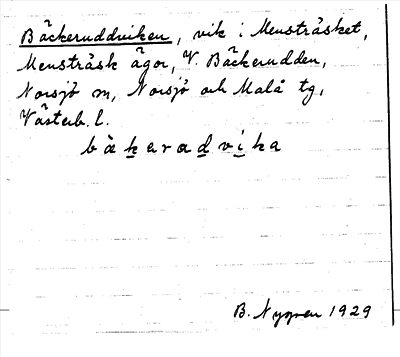 Bäckeruddviken, vik i Mensträsket,
Mensträsk ägor, V. Bäckerudden,
Norsjö sn, Norsjö och Malå tg,
Västerb. l.
bäkaradvika
B. Nygren 1929